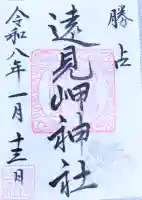 勝占
遠見岬神社
令和八年一月十三日